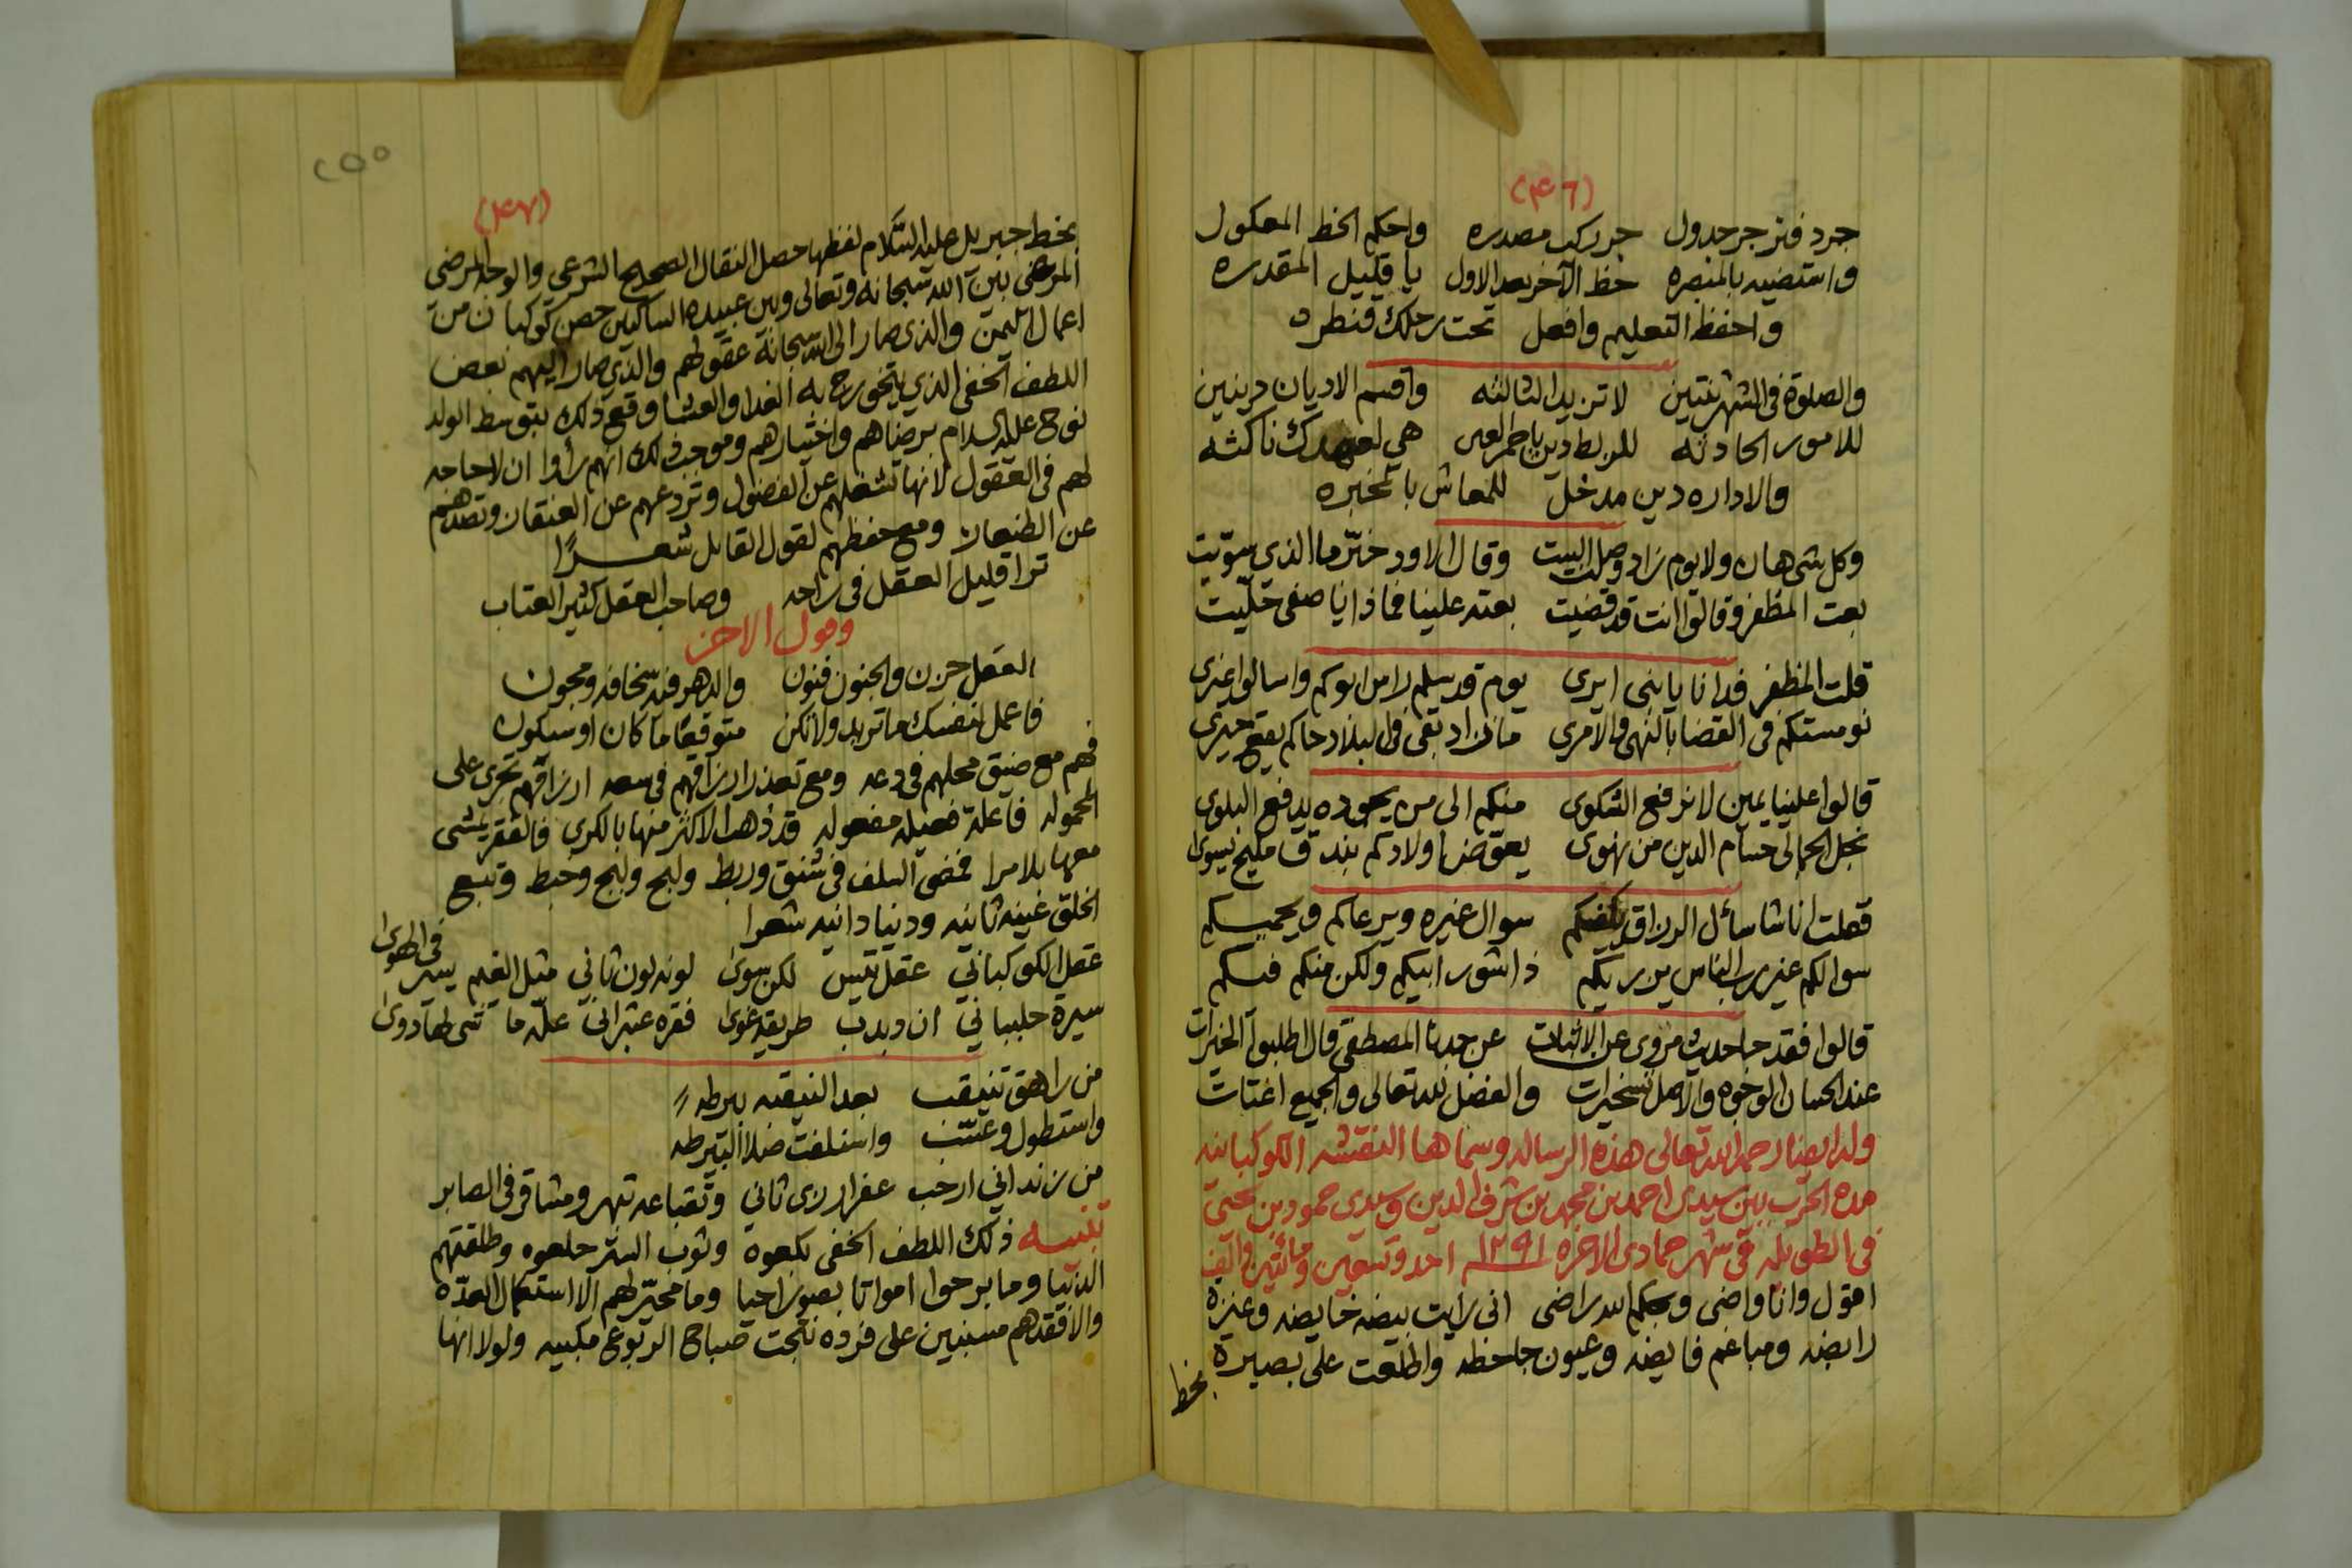 (٤٦)
جرد فتر جر جدول جر ركب مصدره واحكم الخط المعكول
واستضيه بالمنصره خط الآخر بعد الاول يا قليل المقدره
واحفظ التعليم وافعل تحت رحلك قنطره
والصلوة في الشهر ثنتين لا تزيد الثالثه واقسم الاديان دينين
للامور الحادثه للربط دين هي لعهدك ناكثه
والاداره دين مدخل للمعاش بالمخبره
وكل شي هان ولا يوم زاد وصلت البيت وقال الاود خبّر ما الذي سوّيت
بعت المظفر وقالوا انت قد قضيت بعته علينا فماذا يا صفي خلّيت
قلت المظفر فدا نا يا بني ايري يوم قد سلم راس ابوكم واسالوا غيري
نومستكم في القضا بالنهي والامري ما زاد بقي في البلاد حاكم يقع حيري
قالوا علينا يمين لا نرفع الشكوى منكم الى من يجوده يدفع البلوى
نجل الجمالي حسام الدين من نهوى يعوّض اولادكم بندق مليح يسوى
فقلت انا شا سائل الرزاق يكفيكم سوال غيره ويرعاكم ويحميكم
سوالكم غير رب الناس يزريكم ذا شور ابيكم ولكن منكم فيكم
قالوا فقد جا حديث مروي عن الاثبات عن جدنا المصطفى قال اطلبوا الخيرات
عند الحسان الوجوه والاصل تسخيرات والفضل لله تعالى والجميع اغتات
وله ايضا رحمه الله تعالى هذه الرساله وسماها النقشه الكوكبانيه
مدة الحرب بين سيدي احمد بن محمد بن شرف الدين وسيدي حمود بن يحيى
في الطويله في شهر جمادى الاخره ١٢٩١ احد وتسعين ومائتين والف
اقول وانا واضي وبحكم الله راضي اني رايت بيضه خايضه وعنزة
رابضه ومباعم فايضه وعيون جاحظه واطلعت على بصيرة
بخط
٢٥٥
(٤٧)
بخط جبريل عليه السلام لفظها حصل النقال الصحيح الشرعي والوجه المرضي
المرضي بين الله سبحانه وتعالى وبين عبيده الساكنين حصن كوكبان من
اعمال اليمن والذي صار الى الله سبحانه عقولهم والذي صار اليهم بعض
اللطف الخفي الذي يتخورج به الغدا والعشا وقع ذلك بتوسط الولد
نوح عليه السلام برضاهم واختيارهم وموجب ذلك انهم رأوا ان لا حاجه
لهم في العقول لانها تشغلهم عن الفضول وتردعهم عن العنقان وتصدهم
عن الطنعان ومع حفظهم لقول القايل شعرًا
ترا قليل العقل في راحه وصاحب العقل كثير العتاب
وقول الاخر
العقل حزن والجنون فنون والدهر فيه سخافه ومجون
فاعمل لنفسك ما تريد ولا تكن متوقعًا ما كان او سيكون
فهم مع ضيق محلهم في دعه ومع تعذر ارزاقهم في سعه ارزاقهم تجري على
المحموله فاعلة فعيله مفعوله قد ذهب الاكثر منها بالكري فالفقر يمشي
معها بلا مرا فمضى السلف في شنق وربط ولبح ولبج وخبط وتبع
الخلق غيبه ثانيه ودنيا دانيه شعرا
عقل الكوكباني عقل تيس لكن سوى لونه لون ثاني مثل الغيم يسير في الهوى
سيرة حلبباني ان دبدب طريقه عوى فقره عثراني علّه ما تنى لها دوى
من راهق تنيقب بعد النيقبه بيرطه
واستطول وعنتب واستلفت ضلا البتيرطه
من زنداني ارخب عفرار رزى ثاني وتقباعه تهر ومشاقر في الصابر
تنبيه ذلك اللطف الخفي بكعوة وثوب الستر خلعوه وطلقتهم
الدنيا وما برحوا امواتا بصور احيا وما مخبّر لهم الا استكمال العدّه
والا فقدهم مسنبين على فرده نتجت صباح الربوع مكبيه ولولا انها